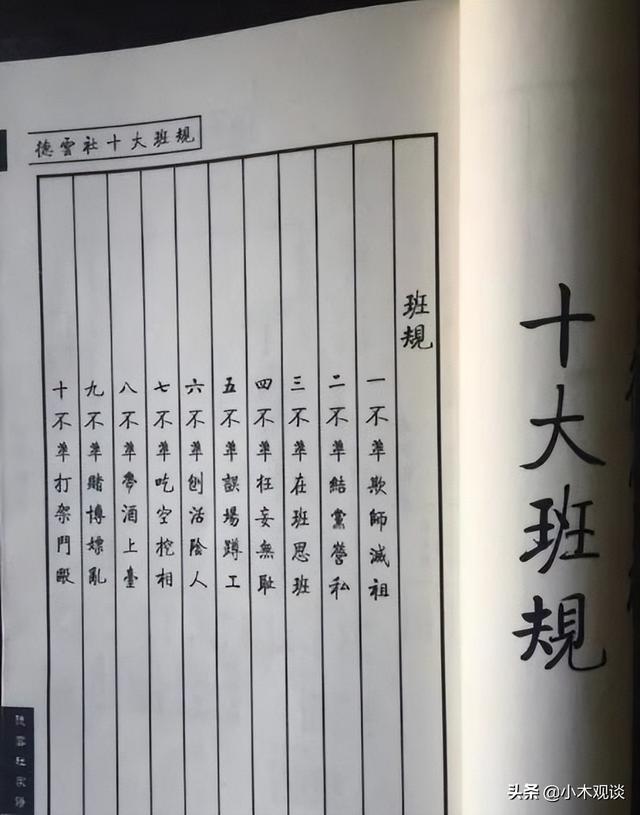 十大班規
德雲社十大班规
班規
一不準欺師滅祖
二不準結黨營私
三不準在班思班
四不準狂妄無耻
五不準誤場蹲工
六不準刨活陰人
七不準吃空挖相
八不準帶酒上臺
九不準賭博嫖亂
十不準打架鬥毆
头条 @小木观谈